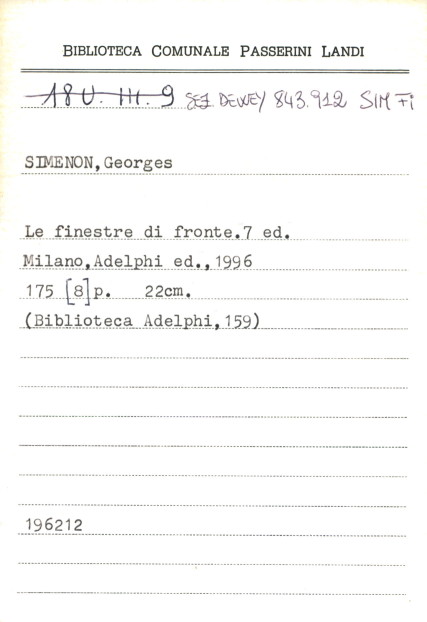 BIBLIOTECA COMUNALE PASSERINI LANDI
18 U. III. 9 SEZ DEWEY 843.912 SIM FI
SIMENON,Georges
Le finestre di fronte.7 ed.
Milano,Adelphi ed.,1996
175 [8]p. 22cm.
(Biblioteca Adelphi,159)
196212